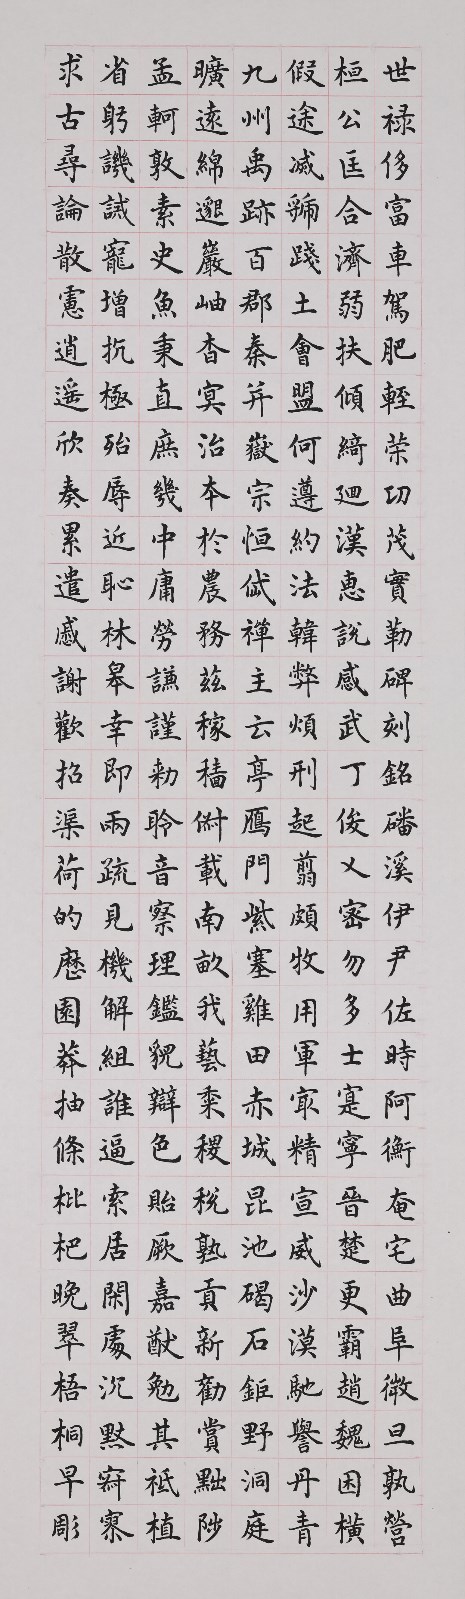 世禄侈富車駕肥輕策功茂實勒碑刻銘磻溪伊尹佐時阿衡奄宅曲阜微旦孰營
桓公匡合濟弱扶傾綺迴漢惠說感武丁俊乂密勿多士寔寧晉楚更霸趙魏困橫
假途滅虢踐土會盟何遵約法韓弊煩刑起翦頗牧用軍㝡精宣威沙漠馳譽丹青
九州禹跡百郡秦并嶽宗恒岱禪主云亭鴈門紫塞雞田赤城昆池碣石鉅野洞庭
曠遠綿邈巖岫杳冥治本於農務茲稼穡俶載南畝我藝黍稷稅熟貢新勸賞黜陟
孟軻敦素史魚秉直庶幾中庸勞謙謹勅聆音察理鑑貌辯色貽厥嘉猷勉其祗植
省躬譏誡寵增抗極殆辱近恥林皋幸即兩疏見機解組誰逼索居閑處沉默寂寥
求古尋論散慮逍遥欣奏累遣慼謝歡招渠荷的歷園莽抽條枇杷晚翠梧桐早彫